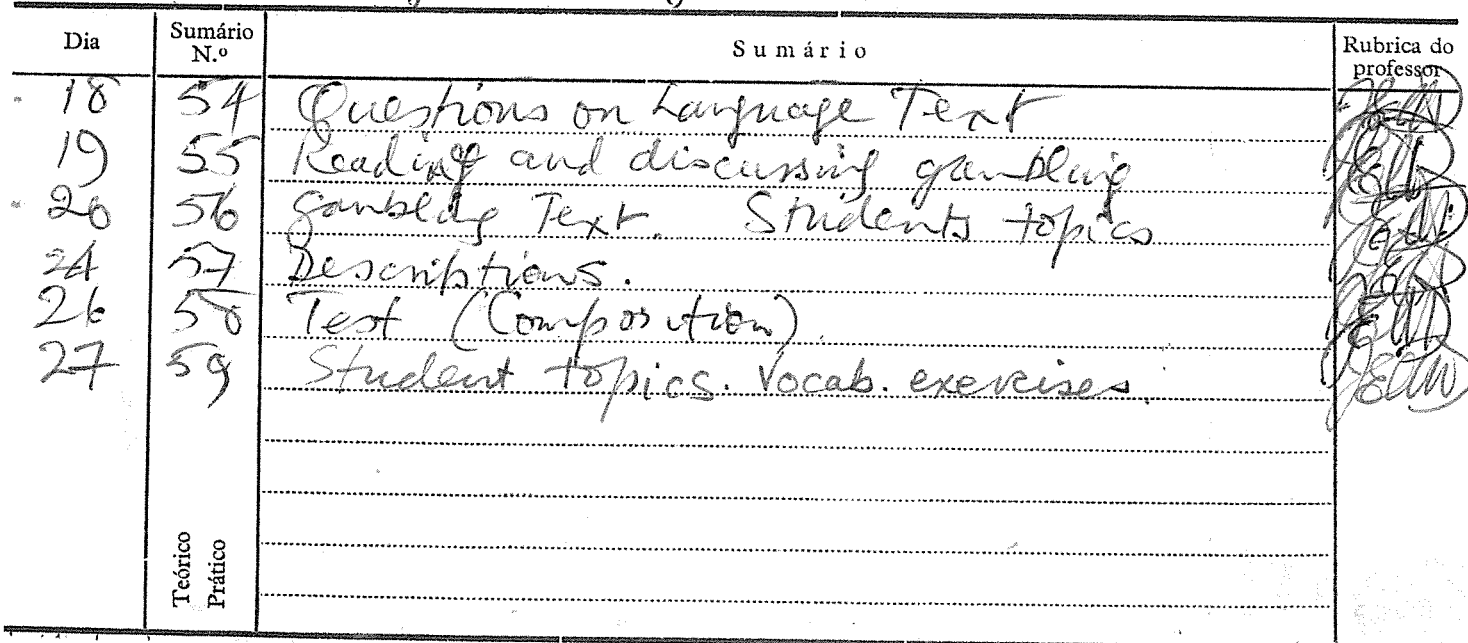 Dia Sumário N.º Sumário Rubrica do professor
18 54 Questions on Language Text
19 55 Reading and discussing gambling
20 56 Gambling Text. Students topics
24 57 Descriptions.
26 58 Test (Composition).
27 59 Student topics. Vocab. exercises.
Teórico
Prático